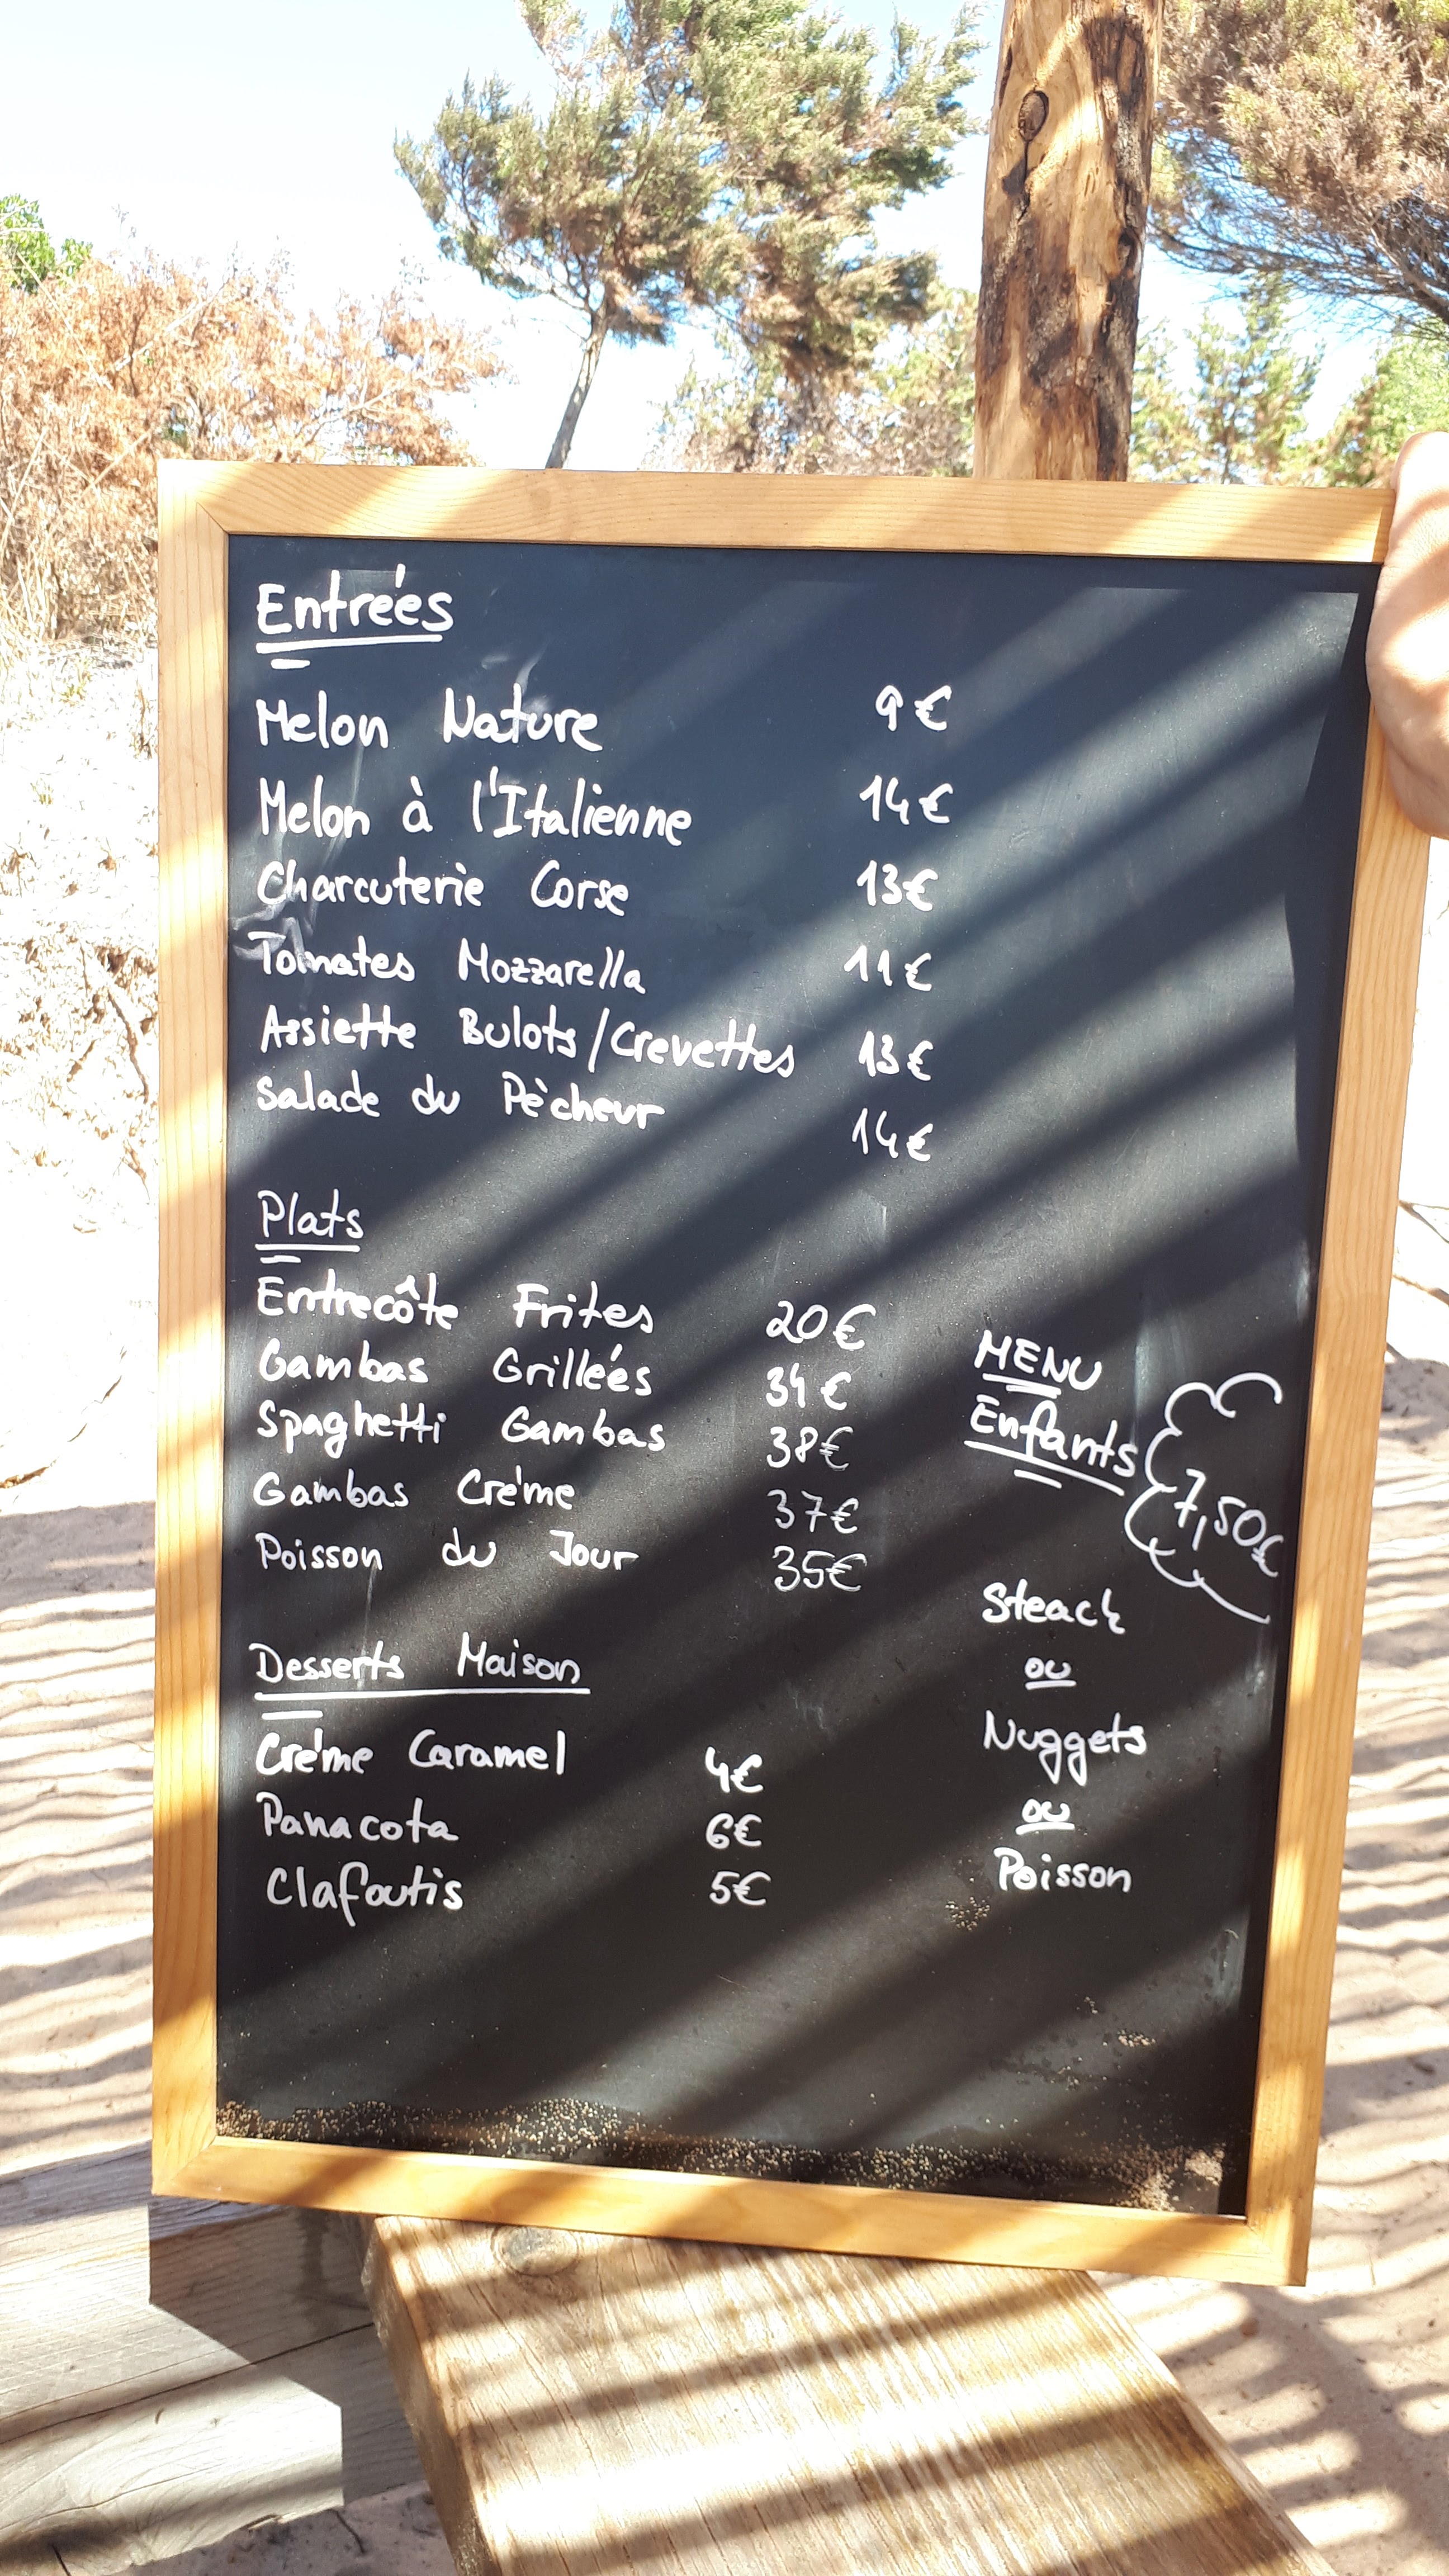 Entreés
Melon Nature 9€
Melon à l'Italienne 14€
Charcuterie Corse 13€
Tomates Mozzarella 11€
Assiette Bulots/Crevettes 13€
Salade du Pècheur 14€
Plats
Entrecôte Frites 20€
Gambas Grilleés 34€
Spaghetti Gambas 38€
Gambas Crème 37€
Poisson du Jour 35€
Desserts Maison
Crème Caramel 4€
Panacota 6€
Clafoutis 5€
MENU
Enfants 7,50€
Steack
ou
Nuggets
ou
Poisson